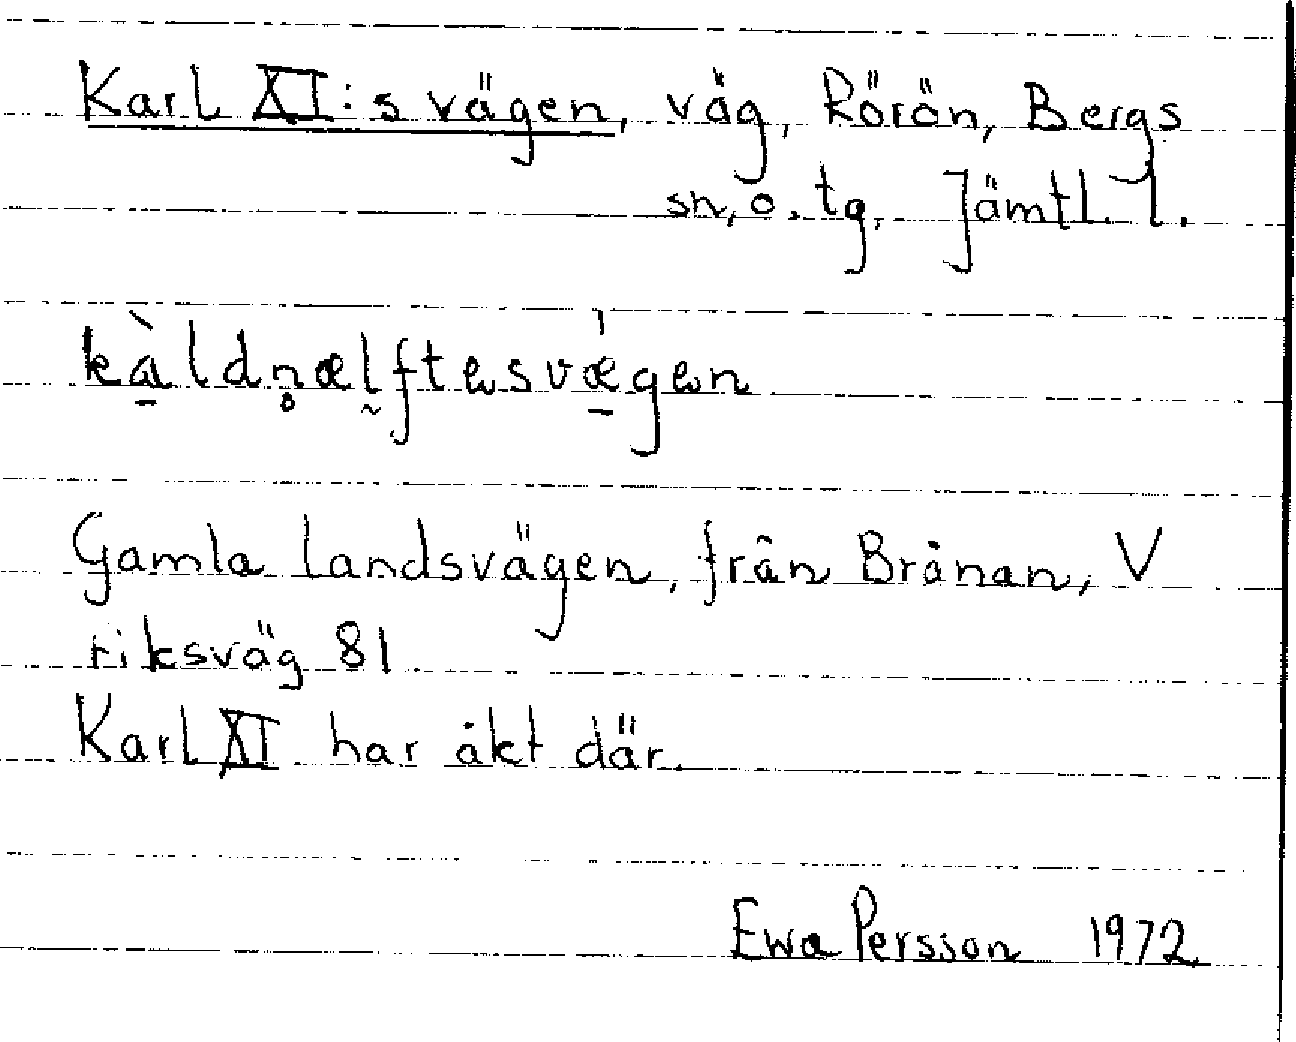 Karl XI:s vägen, väg, Rörön, Bergs
sn, o. tg, Jämtl. l.
kà̱ldn̥æl̰ftesvǽ̱gen
Gamla landsvägen, från Brånan, V
riksväg 81
Karl XI har åkt där.
Ewa Persson 1972